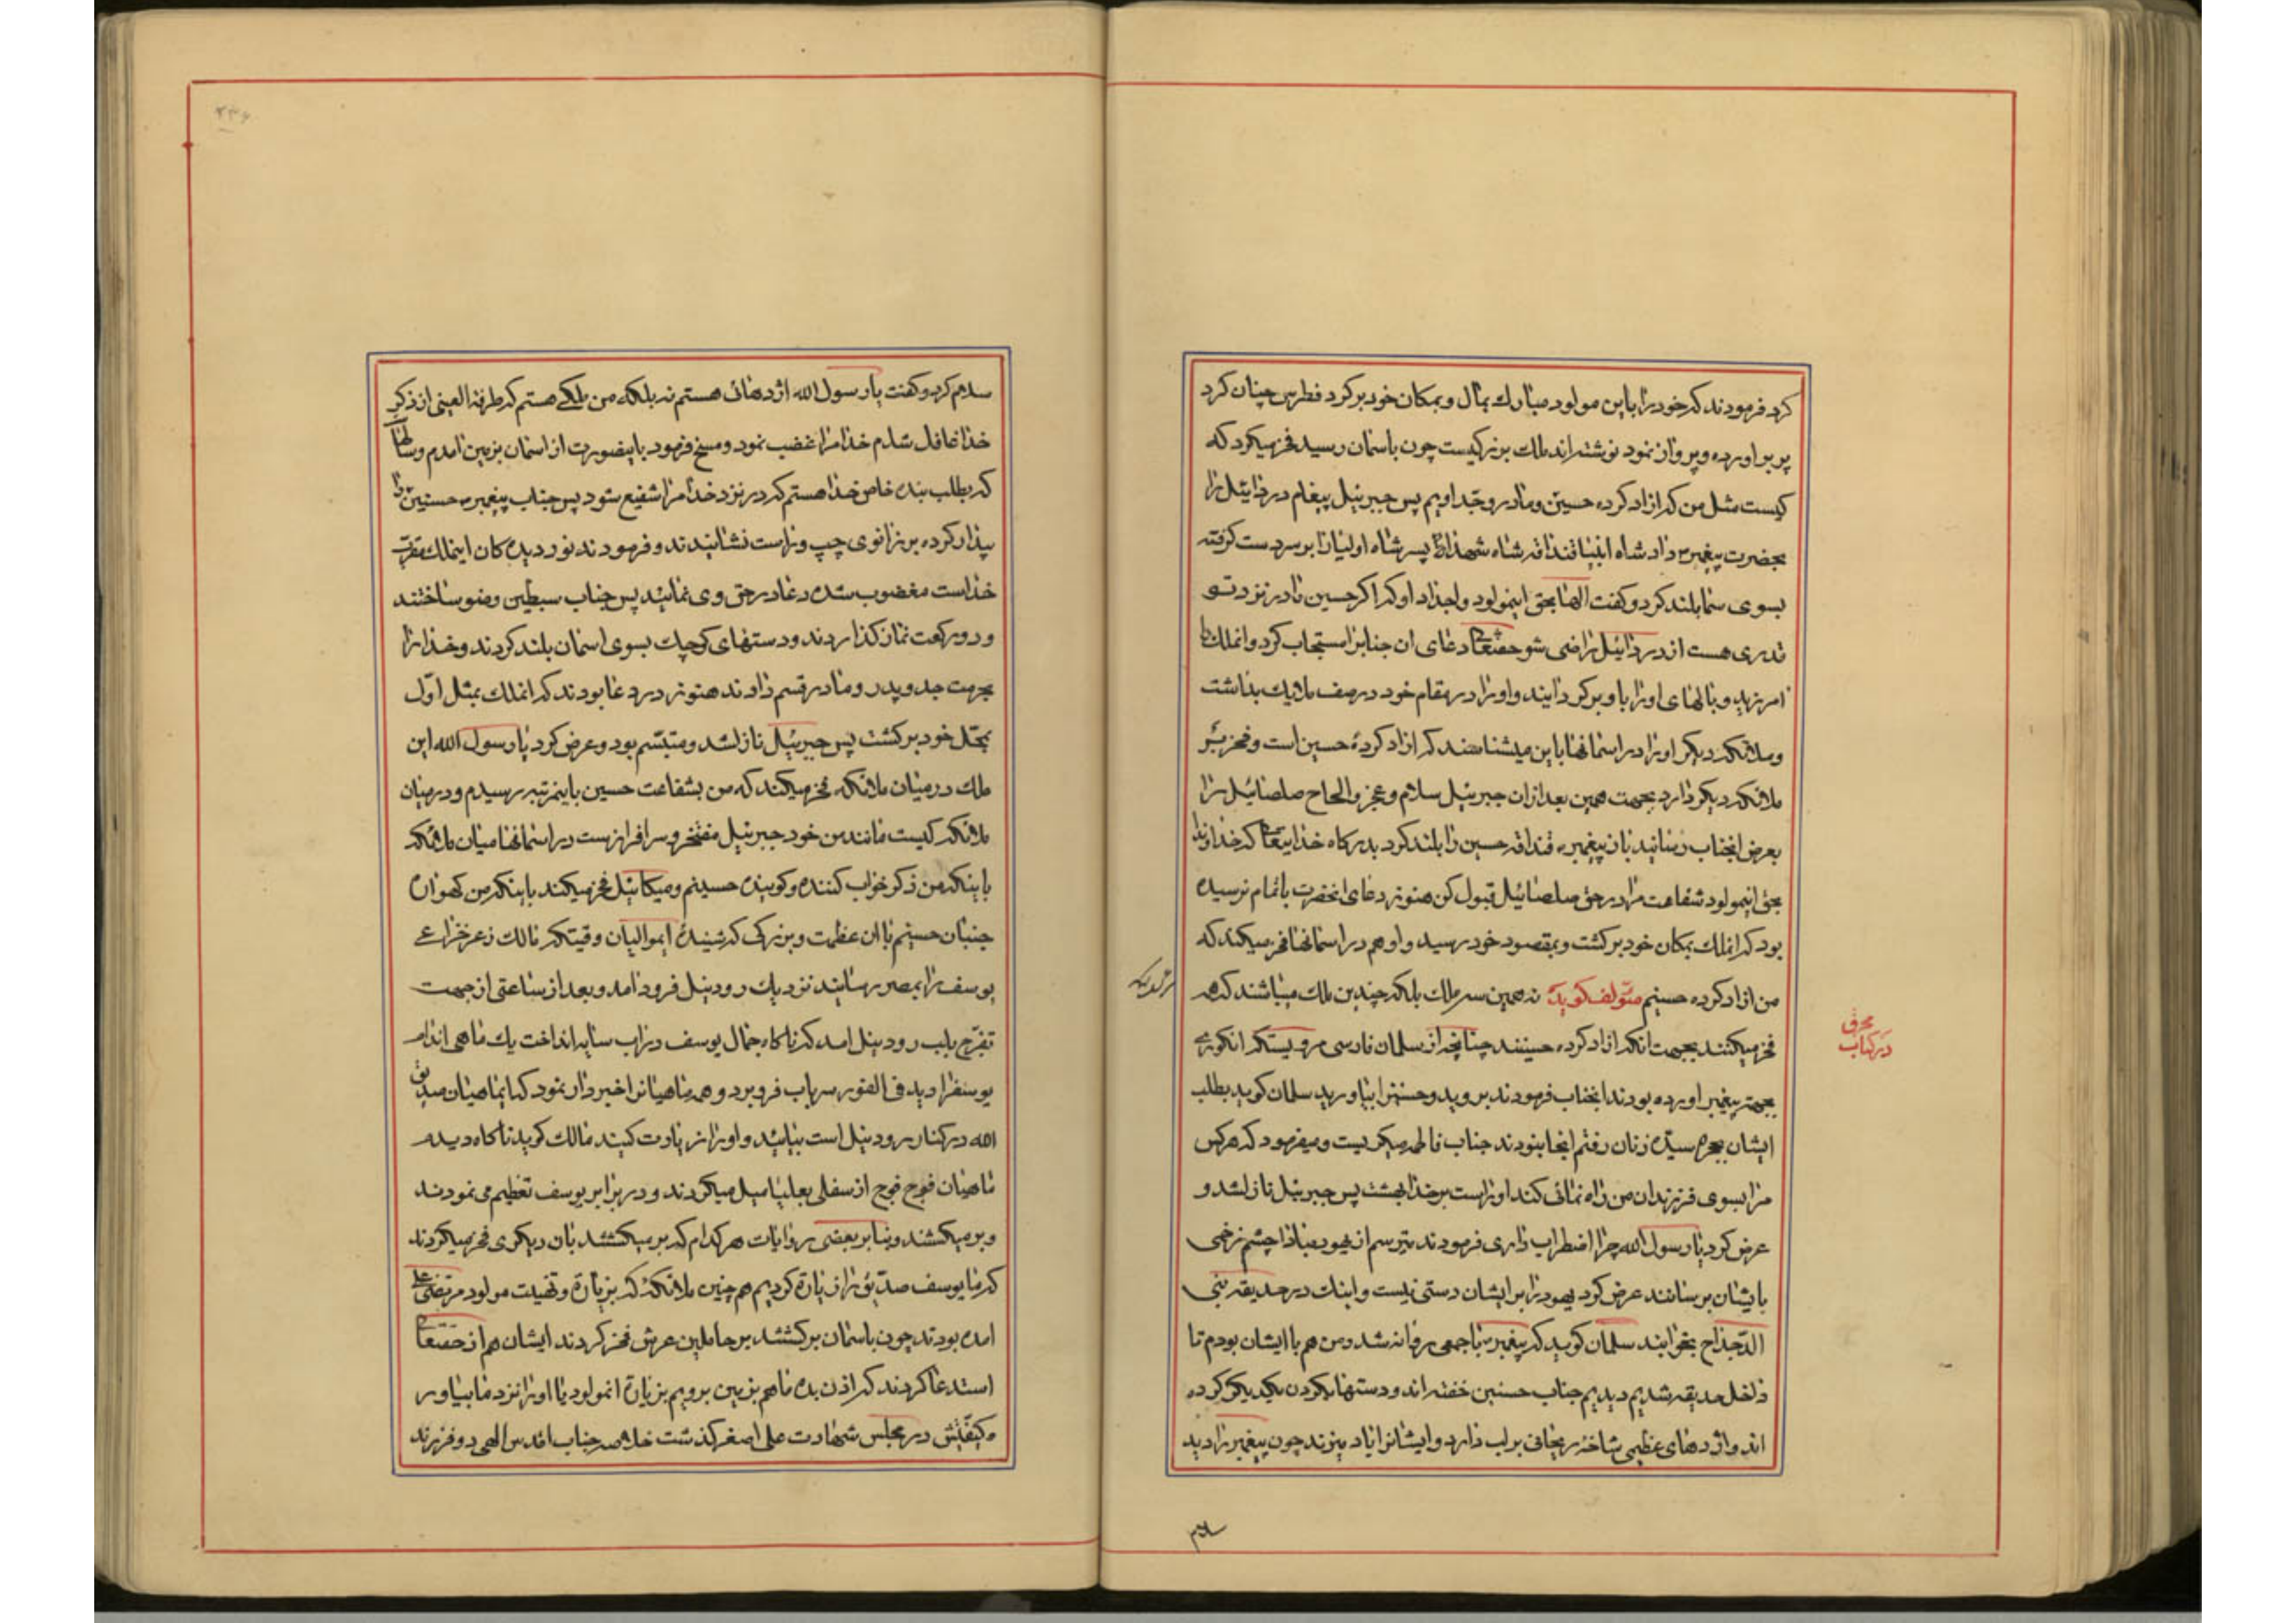 کرد فرمودند که خود را باین مولود مبارک بمال و بمکان خود برگرد فطرس چنان کرد
پر براورده و پرواز نمود نوشته اند ملک بزرگیست چون باسمان رسید فخر میکرد که
کیست مثل من که ازاد کرده حسین و مادر و جد اویم پس جبرئیل پیغام دردائیل را
بحضرت پیغمبر داد شاه انبیا قنداقه شاه شهدا پسر شاه اولیا را بر سر دست گرفته
بسوی سما بلند کرد و گفت الها بحق اینمولود و اجداد او که اگر حسین را در نزد تو
قدری هست از دردائیل راضی شو حقتعا دعای ان جناب را مستجاب کرد و انملک را
امرزید و بالهای او را باو برگردانید و او را در مقام خود در صف ملایک بداشت
و ملائکه دیگر او را در اسمانها باین میشناسند که ازاد کرده حسین است و فخر بر
ملائکه دیگر دارد بجهت همین بعد از ان جبرئیل سلام و عجز و الحاح صلصائیل را
بعرض انجناب رسانید باز پیغمبر قنداقه حسین را بلند کرد بدرگاه خدایتعا که خداوندا
بحق اینمولود شفاعت مرا در حق صلصائیل قبول کن هنوز دعای انحضرت باتمام نرسیده
بود که انملک بمکان خود برگشت و بمقصود خود رسید و او هم در اسمانها فخر میکند که
من ازاد کرده حسینم مؤلف گوید نه همین سه ملک بلکه چندین ملک میباشند که هم
فخر میکنند بجهت انکه ازاد کرده حسینند چنانچه از سلمان فارسی مرویستکه انگوری
بجهت پیغمبر اورده بودند انجناب فرمودند بروید و حسنین را بیاورید سلمان گوید بطلب
ایشان بحجره سیده زنان رفتم انجا نبودند جناب فاطمه میگریست و میفرمود که هر کس
مرا بسوی فرزندان من راه نمائی کند او راست بر خدا بهشت پس جبرئیل نازلشد و
عرض کرد یا رسول الله چرا اضطراب داری فرمودند میترسم از یهود مبادا چشم زخمی
بایشان برسانند عرض کرد یهود را بر ایشان دستی نیست و اینک در حدیقه بنی
الدحداح بخوابند سلمان گوید که پیغمبر با جمعی روانه شد و من هم با ایشان بودم تا
داخل حدیقه شدیم دیدیم جناب حسنین خفته اند و دستها بگردن یکدیگر کرده
اند و اژدهای عظیمی شاخه ریحانی بر لب دارد و ایشانرا باد میزند چون پیغمبر را دید
محرق
در کتاب
سلام کرد و گفت یا رسول الله اژدهائی هستم نه بلکه من ملکی هستم که طرفة العینی از ذکر
خدا غافل شدم خدا مرا غضب نمود و مسخ فرمود باینصورت از اسمان بزمین امدم و سالها
که بطلب بنده خاص خدا هستم که در نزد خدا مرا شفیع شود پس جناب پیغمبر حسنین را
بیدار کرده بر زانوی چپ و راست نشانیدند و فرمودند نور دیده کان اینملک مقرب
خداست مغضوب شده دعا در حق وی نمائید پس جناب سبطین وضو ساختند
و دو رکعت نماز گذاردند و دستهای کوچک بسوی اسمان بلند کردند و خدا را
بحرمت جد و پدر و مادر قسم دادند هنوز در دعا بودند که انملک بمثل اول
بمحل خود برگشت پس جبرئیل نازلشد و متبسم بود و عرض کرد یا رسول الله این
ملک در میان ملائکه فخر میکند که من بشفاعت حسین باینمرتبه رسیدم و در میان
ملائکه کیست مانند من خود جبرئیل مفتخر و سرافراز است در اسمانها میان ملائکه
باینکه من ذکر خواب کننده و گوینده حسینم و میکائیل فخر میکند باینکه من گهواره
جنبان حسینم با ان عظمت و بزرگی که شنیدهٔ ایموالیان وقیتکه مالک ذعر خزاعی
یوسف را بمصر رسانید نزدیک رود نیل فرود امد و بعد از ساعتی از جهت
تفرج بلب رود نیل امد که ناگاه جمال یوسف در اب سایه انداخت یک ماهی اندام
یوسفرا دید فی الفور سر باب فرو برد و همه ماهیانرا خبردار نمود که ایماهیان صدیق
الله در کنار رود نیل است بیائید و او را زیارت کنید مالک گوید ناگاه دیدم
ماهیان فوج فوج از سفلی بعلیا میل میکردند و در برابر یوسف تعظیم می نمودند
و بر میگشتند و بنا بر بعضی روایات هر کدام که بر میگشتند بان دیگری فخر میکردند
که ما یوسف صدیق را زیارة کردیم هم چنین ملائکه که بزیارة و تهنیت مولود مرتضی علی
امده بودند چون باسمان برگشتند بر حاملین عرش فخر کردند ایشان هم از حقتعا
استدعا کردند که اذن بده ما هم بزمین برویم بزیارة انمولود یا او را نزد ما بیاور
و کیفیتش در مجلس شهادت علی اصغر گذشت خلاصه جناب اقدس الهی دو فرزند